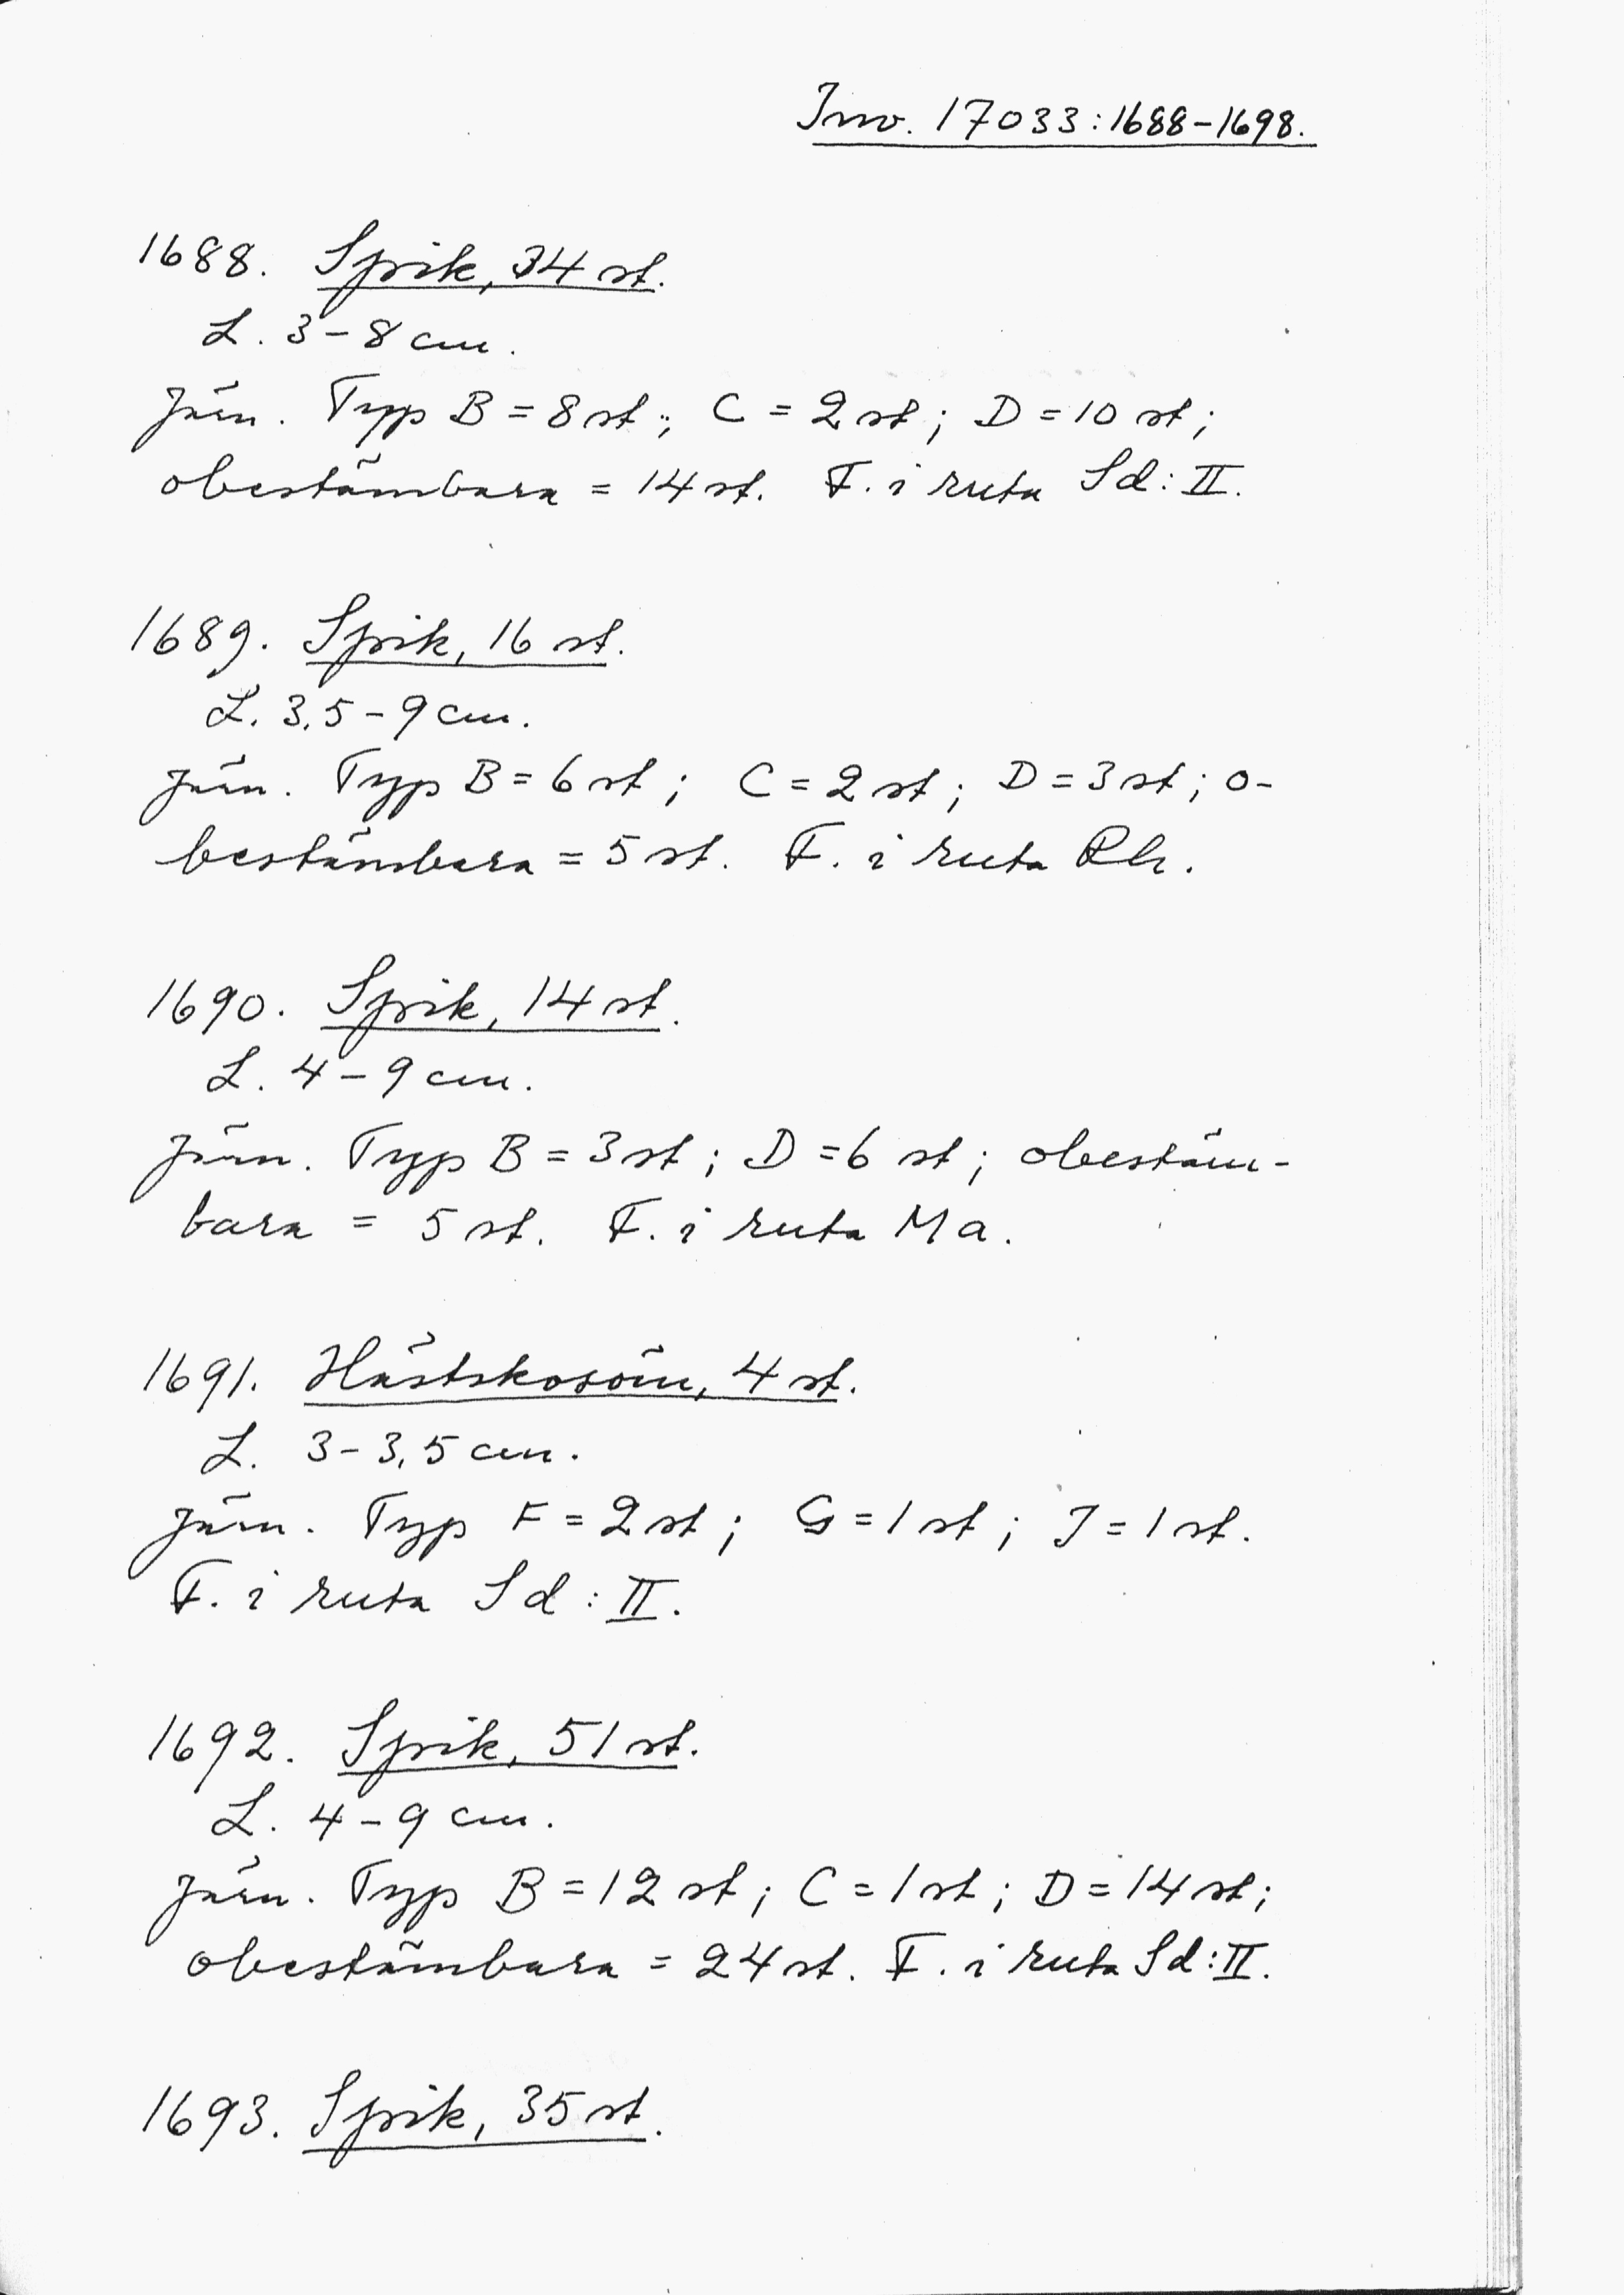 Inv. 17033:1688-1698.
1688. Spik, 34 st.
L. 3-8 cm.
Järn. Typ B = 8 st; C = 2 st; D = 10 st;
obestämbara = 14 st. F. i ruta Sd:II.
1689. Spik, 16 st.
L. 3,5-9 cm.
Järn. Typ B = 6 st; C = 2 st; D = 3 st; o-
bestämbara = 5 st. F. i ruta Rh.
1690. Spik, 14 st.
L. 4-9 cm.
Järn. Typ B = 3 st; D = 6 st; obestäm-
bara = 5 st. F. i ruta Ma.
1691. Hästskosöm, 4 st.
L. 3-3,5 cm.
Järn. Typ F = 2 st; G = 1 st; I = 1 st.
F. i ruta Sd:II.
1692. Spik, 51 st.
L. 4-9 cm.
Järn. Typ B = 12 st; C = 1 st; D = 14 st;
obestämbara = 24 st. F. i ruta Sd:II.
1693. Spik, 35 st.